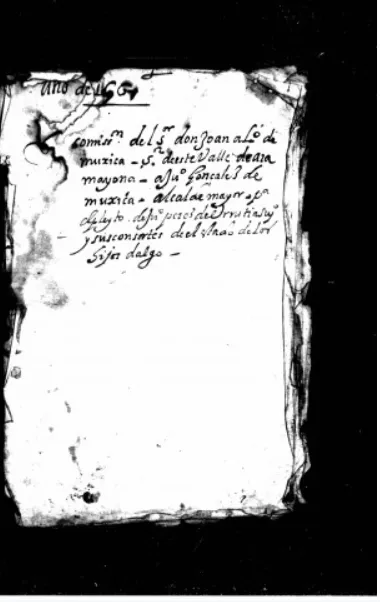 Año de 166
comisión del Sr don Joan alo de
muxica - Sr deeste Valle de ara
mayona - a Juo Gonçales de
muxica - alcalde mayor - pa
el pleyto de Juo perez de Urrutia
y sus consortes de el estado de los
hijos dalgo -